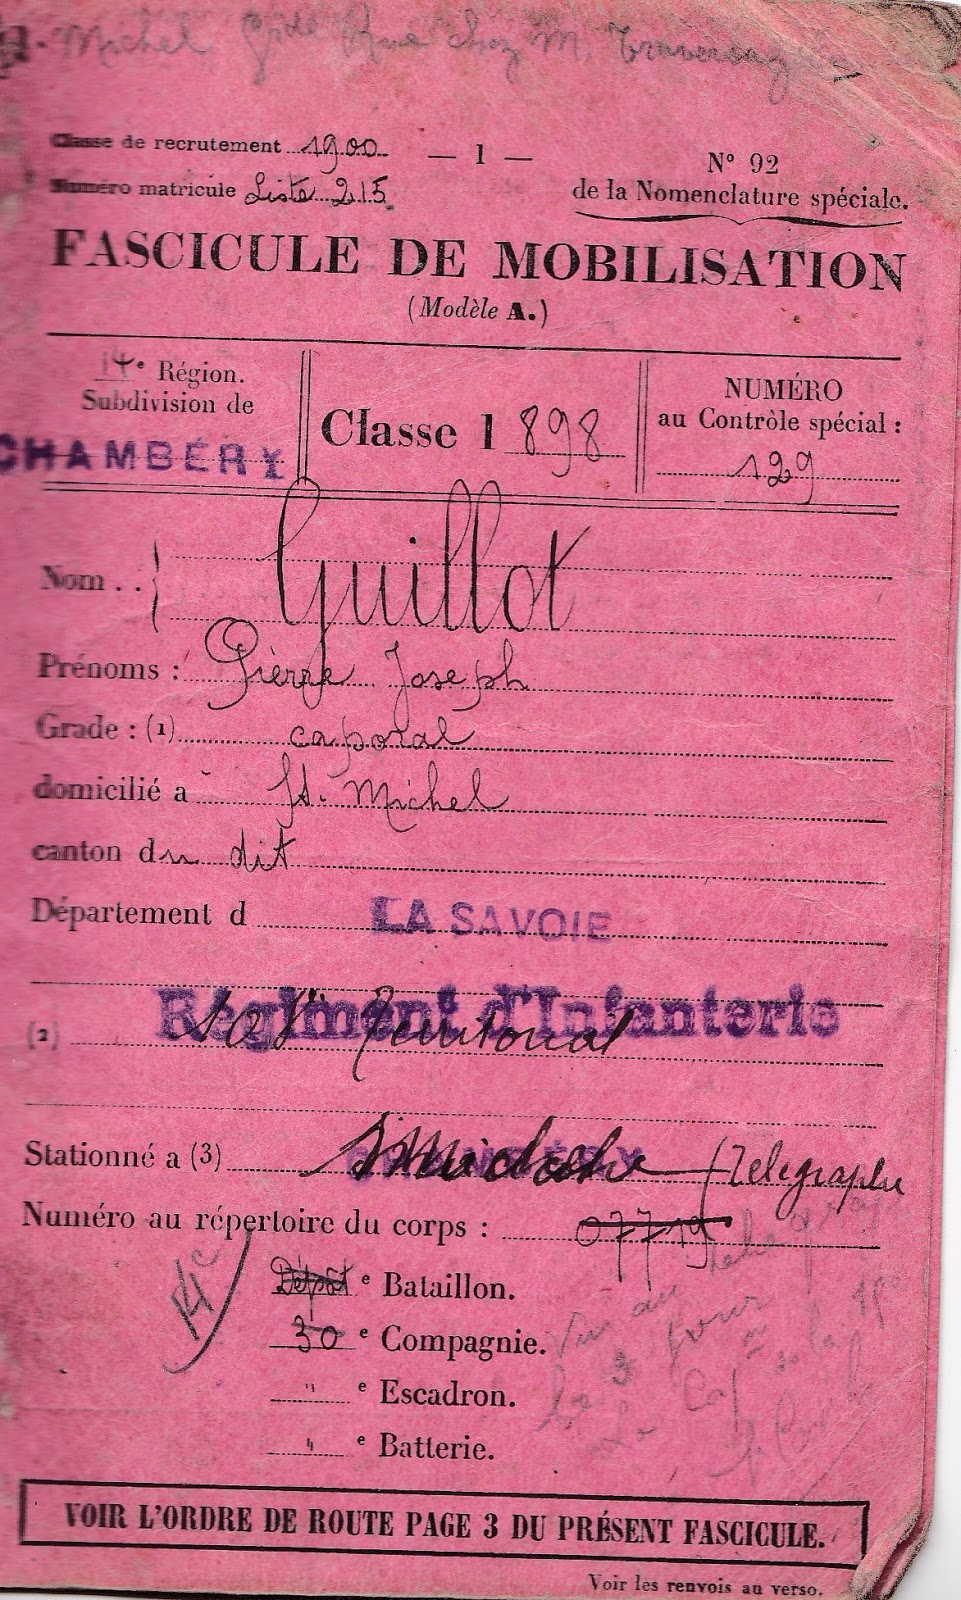 St. Michel Gde Rue chez M.
Classe de recrutement 1900
— 1 —
N° 92
de la Nomenclature spéciale.
Numéro matricule Liste 215
FASCICULE DE MOBILISATION
(Modèle A.)
14e Région.
Subdivision de
CHAMBÉRY
Classe 1898
NUMÉRO
au Contrôle spécial :
129
Nom . . Guillot
Prénoms : Pierre Joseph
Grade : (1) caporal
domicilié a St. Michel
canton du dit
Département d LA SAVOIE
Régiment d'Infanterie
(2) Territorial
Stationné a (3) (Télégraphe
Numéro au répertoire du corps : 07719
14e
Dépôt e Bataillon.
30 e Compagnie.
" e Escadron.
" e Batterie.
VOIR L'ORDRE DE ROUTE PAGE 3 DU PRÉSENT FASCICULE.
Voir les renvois au verso.